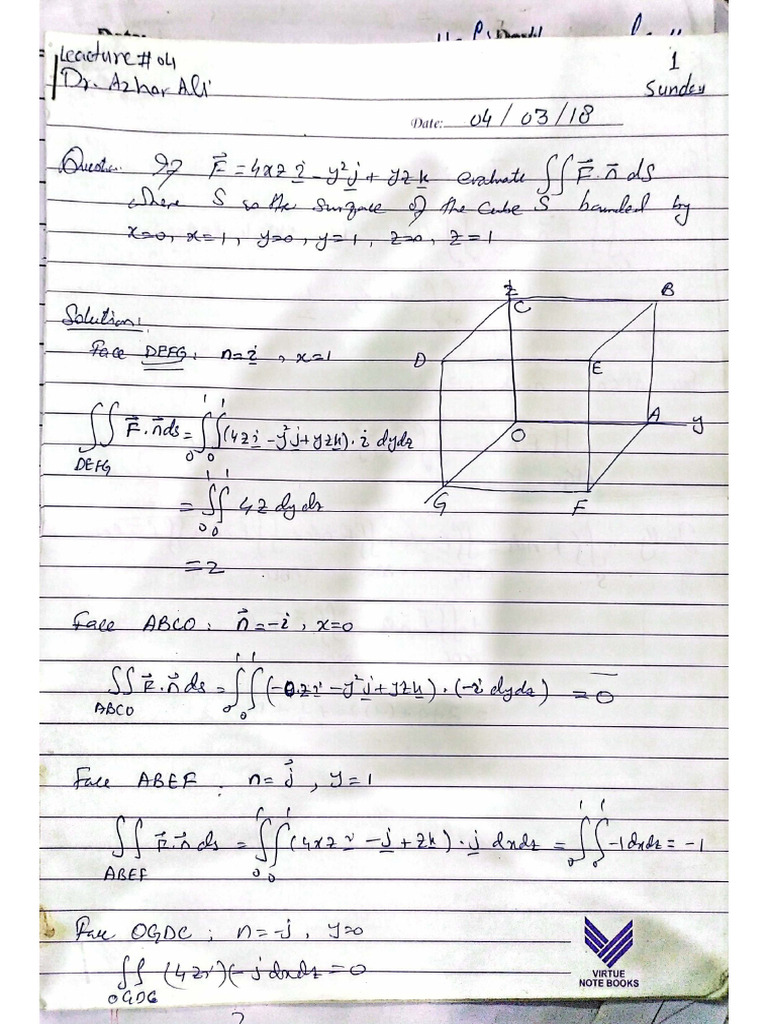 Leacture # 04
1
Dr. Azhar Ali
Sunday
Date: 04/03/18
Question If F⃗ = 4xz i - y²j + yz k evaluate ∬ F⃗.n⃗ ds
where S is the surface of the cube S bounded by
x=0, x=1, y=0, y=1, z=0, z=1
Solution:
Face DEFG: n=i, x=1
Z
B
C
D
E
A
y
O
G
F
∬ F⃗.n⃗ds = ∫₀¹∫₀¹ (4zi - y²j + yzk).i dydz
DEFG
= ∫₀¹∫₀¹ 4z dydz
= 2
Face ABCO: n⃗=-i, x=0
∬ F⃗.n⃗ds = ∫₀¹∫₀¹ (-0.zi - y²j + yzk).(-i dydz) = 0
ABCO
Face ABEF: n=j⃗, y=1
∬ F⃗.n⃗ ds = ∫₀¹∫₀¹ (4xz i - j + zk).j dxdz = ∫₀¹∫₀¹ -1dxdz = -1
ABEF
Face OGDC; n=-j, y=0
∬ (4zi)(-jdxdz = 0
OGDC
VIRTUE
NOTE BOOKS